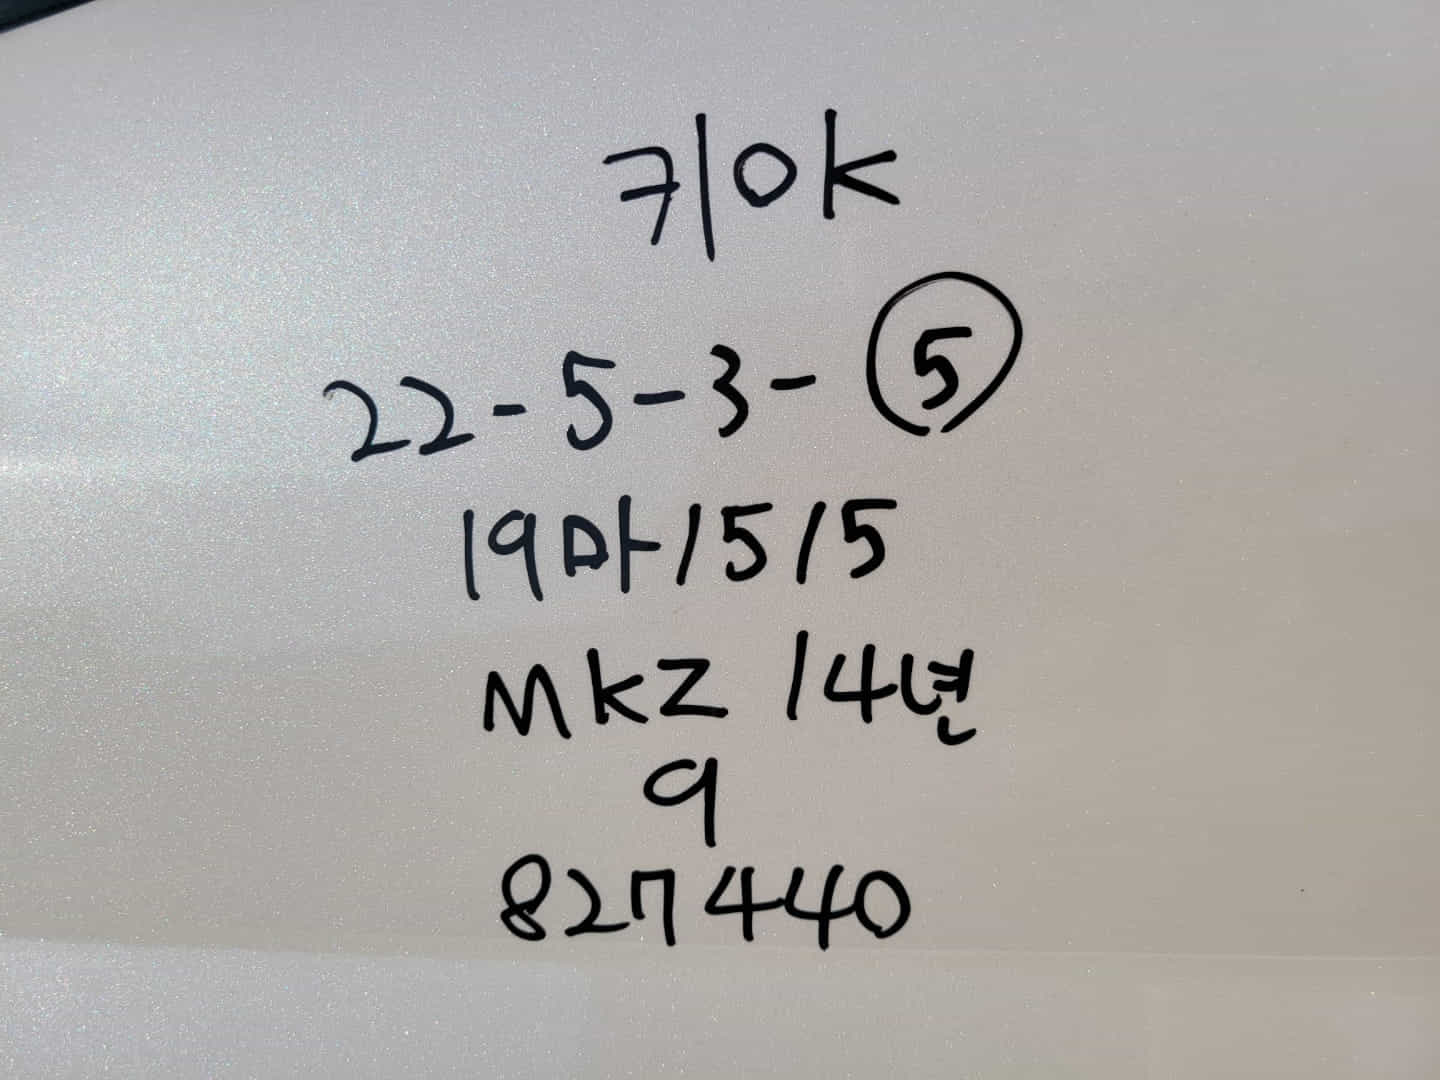 키OK
22-5-3-⑤
19마1515
MKZ 14년
9
827440